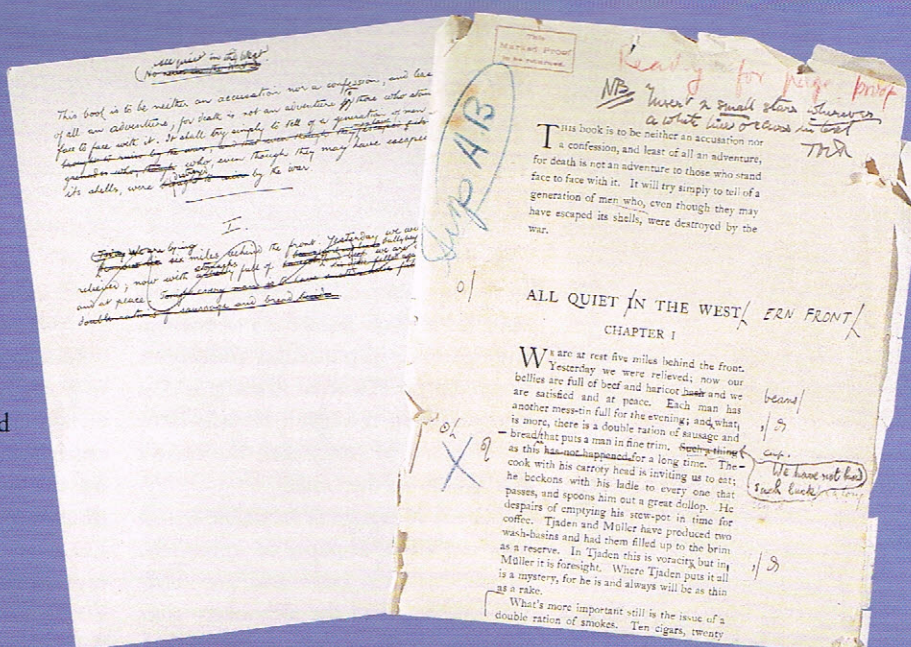 all quiet in the West
This book is to be neither an accusation nor a confession, and leas
of all an adventure, for death is not an adventure to those who stan
face to face with it. It shall try simply to tell of a generation of men
who, even though they may have escaped
its shells, were destroyed by the war
I.
We are lying six miles behind the front. Yesterday we we
relieved; now with full of we are
and at peace
double ration of sausage and bread
d
THIS
MARKED PROOF
TO BE RETURNED
Ready for page proof
NB Insert 2 small stars wherever
a white line occurs in text
Sup AB
THIS book is to be neither an accusation nor
a confession, and least of all an adventure,
for death is not an adventure to those who stand
face to face with it. It will try simply to tell of a
generation of men who, even though they may
have escaped its shells, were destroyed by the
war.
ALL QUIET IN THE WEST/ ERN FRONT/
o/
CHAPTER I
WE are at rest five miles behind the front.
Yesterday we were relieved; now our
bellies are full of beef and haricot hash and we beans/
are satisfied and at peace. Each man has
another mess-tin full for the evening; and what,
is more, there is a double ration of sausage and
bread/that puts a man in fine trim. Such a thing cap.
as this has not happened for a long time. The We have not had
such luck
cook with his carroty head is inviting us to eat;
he beckons with his ladle to every one that
passes, and spoons him out a great dollop. He
despairs of emptying his stew-pot in time for
coffee. Tjaden and Müller have produced two
wash-basins and had them filled up to the brim
as a reserve. In Tjaden this is voracity but in,
Müller it is foresight. Where Tjaden puts it all
is a mystery, for he is and always will be as thin
as a rake.
What's more important still is the issue of a
double ration of smokes. Ten cigars, twenty